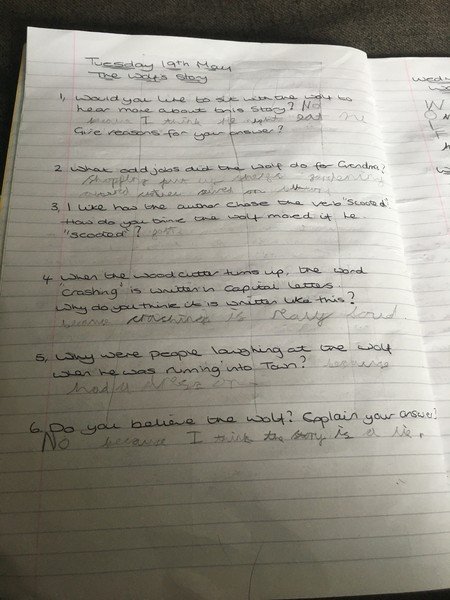 Tuesday 19th May
The Wolf's Story
1, Would you like to sit with the wolf to
hear more about this Story? No
I think he might eat me
Give reasons for your answer?
2. What odd jobs did the wolf do for Grandma?
Shopping put up shelfs gardening
3, I like how the author chose the verb "scooted".
How do you think the wolf moved if he
"scooted"?
4 When the woodcutter turns up, the word
'Crashing' is written in Capital letters.
Why do you think it is written like this?
is really loud.
5, Why were people laughing at the wolf
when he was running into Town? because
had a dress on
6, Do you believe the wolf? Explain your answer?
No because I think the story is a lie.
Wedn
W
O
L
F